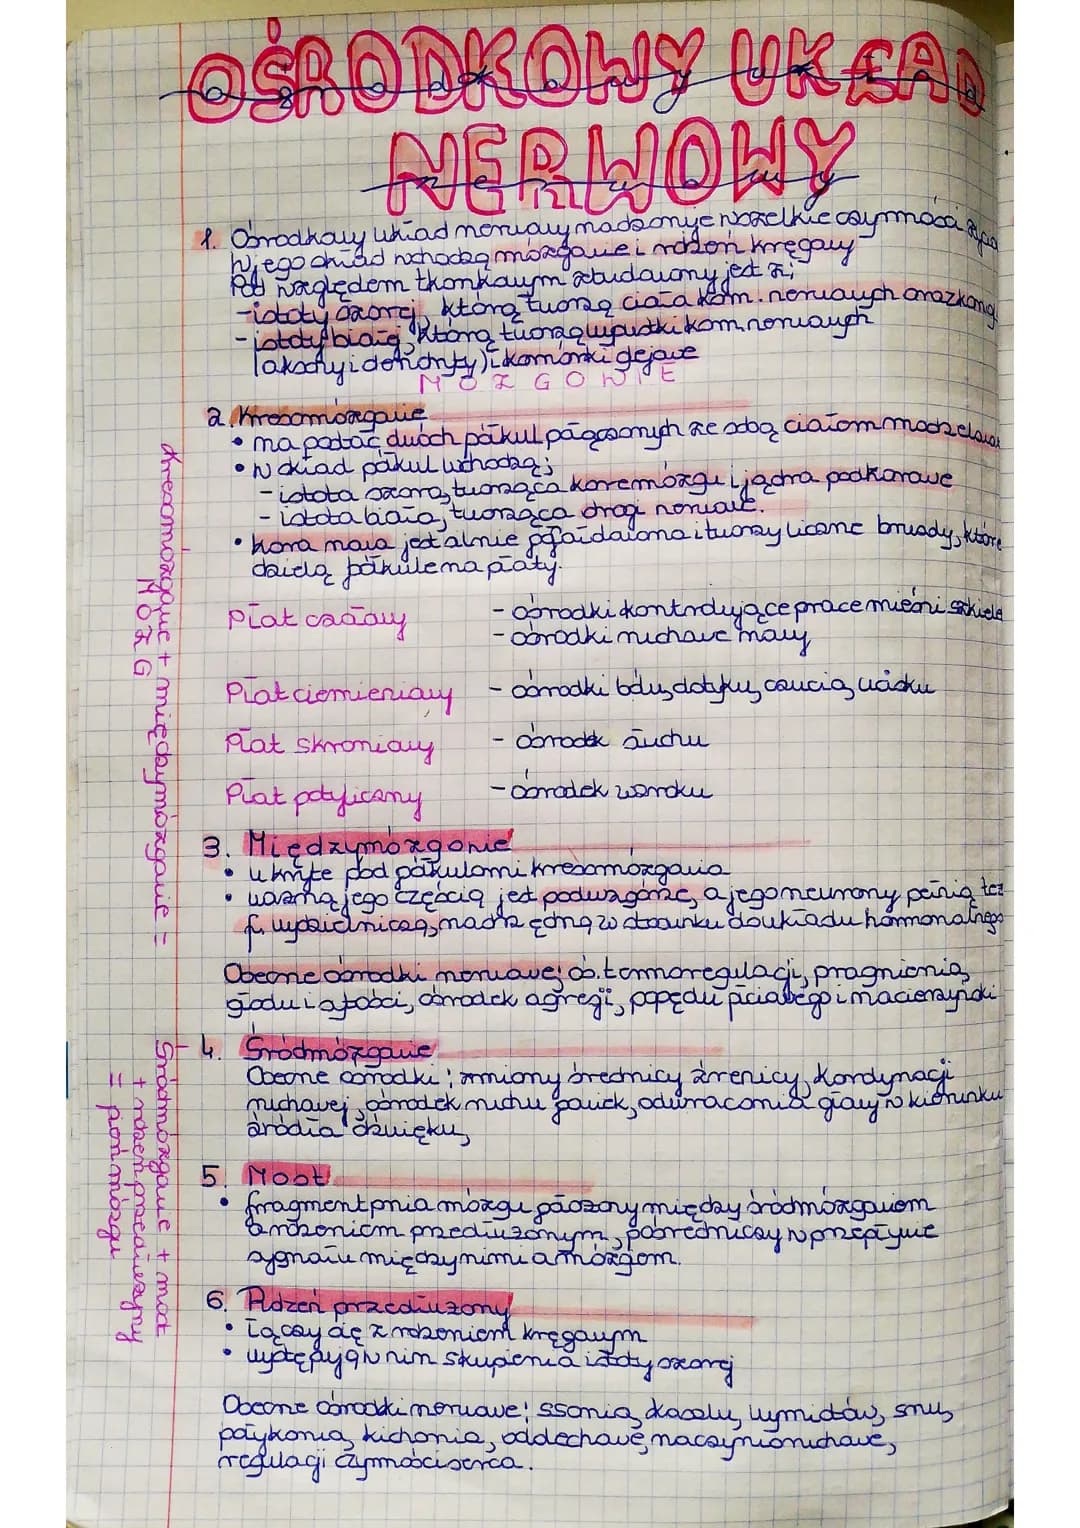 OŚRODKOWY UKŁAD
NERWOWY
1. Ośrodkowy układ nerwowy nadzoruje wszelkie czynności
W jego skład wchodzą mózgowie i rdzeń kręgowy
Pod względem tkankowym zbudowany jest z:
- istoty szarej, którą tworzą ciała kom. nerwowych oraz
- istoty białej, którą tworzą wypustki kom. nerwowych
(aksony i dendryty) i komórki glejowe
MÓZGOWIE
2. Kresomózgowie
• ma postać dwóch półkul połączonych ze sobą ciałem
• w skład półkul wchodzą:
- istota szara, tworząca korę mózgu i jądra podkorowe
- istota biała, tworząca drogi nerwowe.
• kora mózgu jest silnie pofałdowana i tworzy liczne bruzdy, które
dzielą półkule na płaty.
Płat czołowy
- ośrodki kontrolujące pracę mięśni
- ośrodki ruchowe mowy
Płat ciemieniowy
- ośrodki bólu, dotyku, czucia, ucisku
Płat skroniowy
- ośrodek słuchu
Płat potyliczny
- ośrodek wzroku
3. Międzymózgowie
• ukryte pod półkulami kresomózgowia
• ważną jego częścią jest podwzgórze, a jego neurony pełnią też
f. wydzielniczą, nadrzędną w stosunku do układu hormonalnego
Obecne ośrodki nerwowe: oś. termoregulacji, pragnienia,
głodu i sytości, ośrodek agresji, popędu płciowego i
4. Śródmózgowie
Obecne ośrodki: zmiany średnicy źrenicy, kordynacji
ruchowej, ośrodek ruchu gałek, odwracania głowy w kierunku
źródła dźwięku,
5. Most
• fragment pnia mózgu położony między śródmózgowiem
a rdzeniem przedłużonym, pośredniczy w przepływie
sygnału między nimi a mózgiem.
6. Rdzeń przedłużony
• łączy się z rdzeniem kręgowym
• występują w nim skupienia istoty szarej
Obecne ośrodki nerwowe: ssania, kaszlu, wymiotów, snu,
połykania, kichania, oddechowe, naczynioruchowe,
regulacji czynności serca.
Kresomózgowie + międzymózgowie =
MÓZG
Śródmózgowie + most
+ rdzeń przedłużony
= pień mózgu